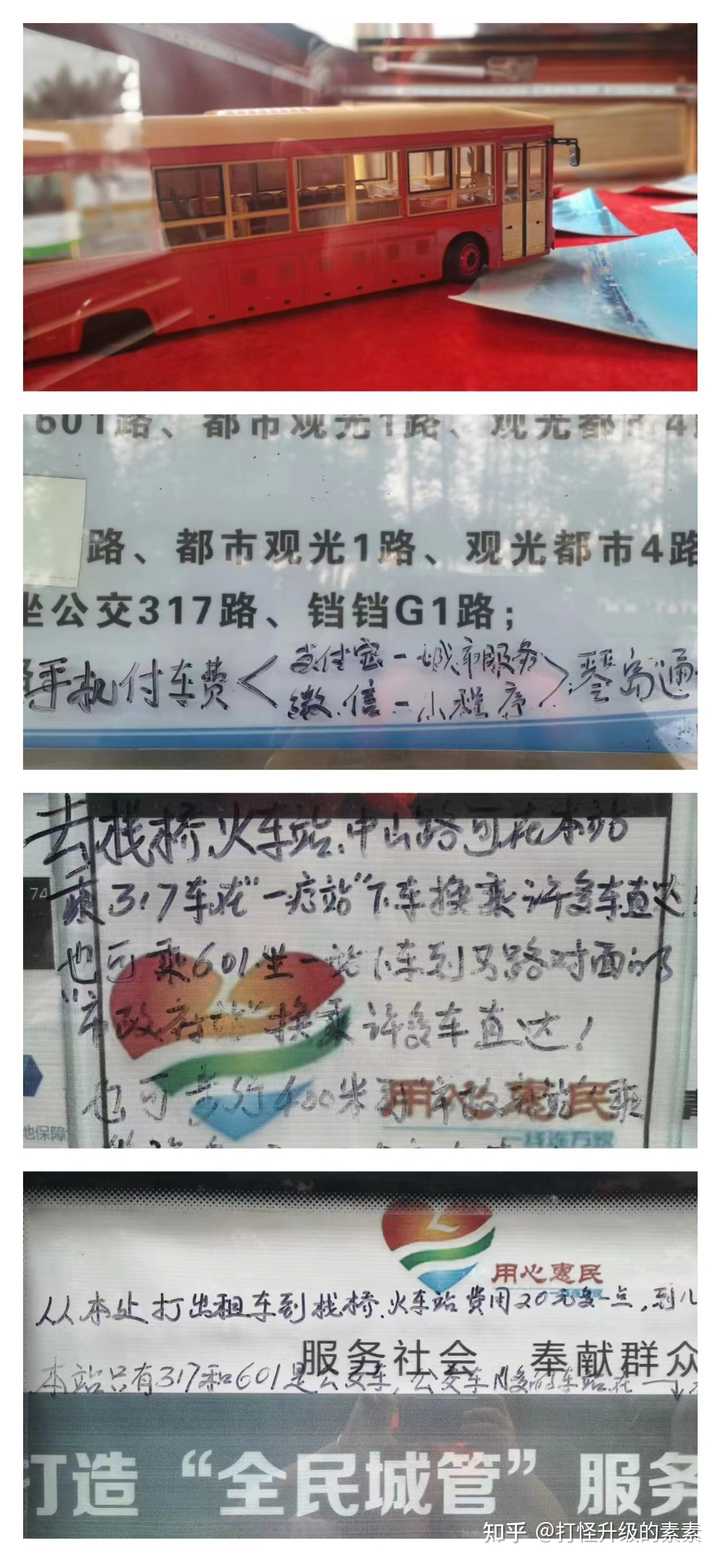 601路、都市观光1路、观光都市4路
路、都市观光1路、观光都市4路
坐公交317路、铛铛G1路；
手机付车费<支付宝－城市服务
微信－小程序>琴岛通
去栈桥、火车站、中山路可在本站
74
乘317车在“一疗站”下车换乘许多车直达！
也可乘601坐一站下车到马路对面的
“市政府站”换乘许多车直达！
也可步行400米到市政府站乘
地保障
用心惠民
一线连万家
用心惠民
从本处打出租车到栈桥、火车站费用20元多一点，到
服务社会 奉献群众
本站只有317和601是公交车，公交车
打造“全民城管”服务
知乎 @打怪升级的素素